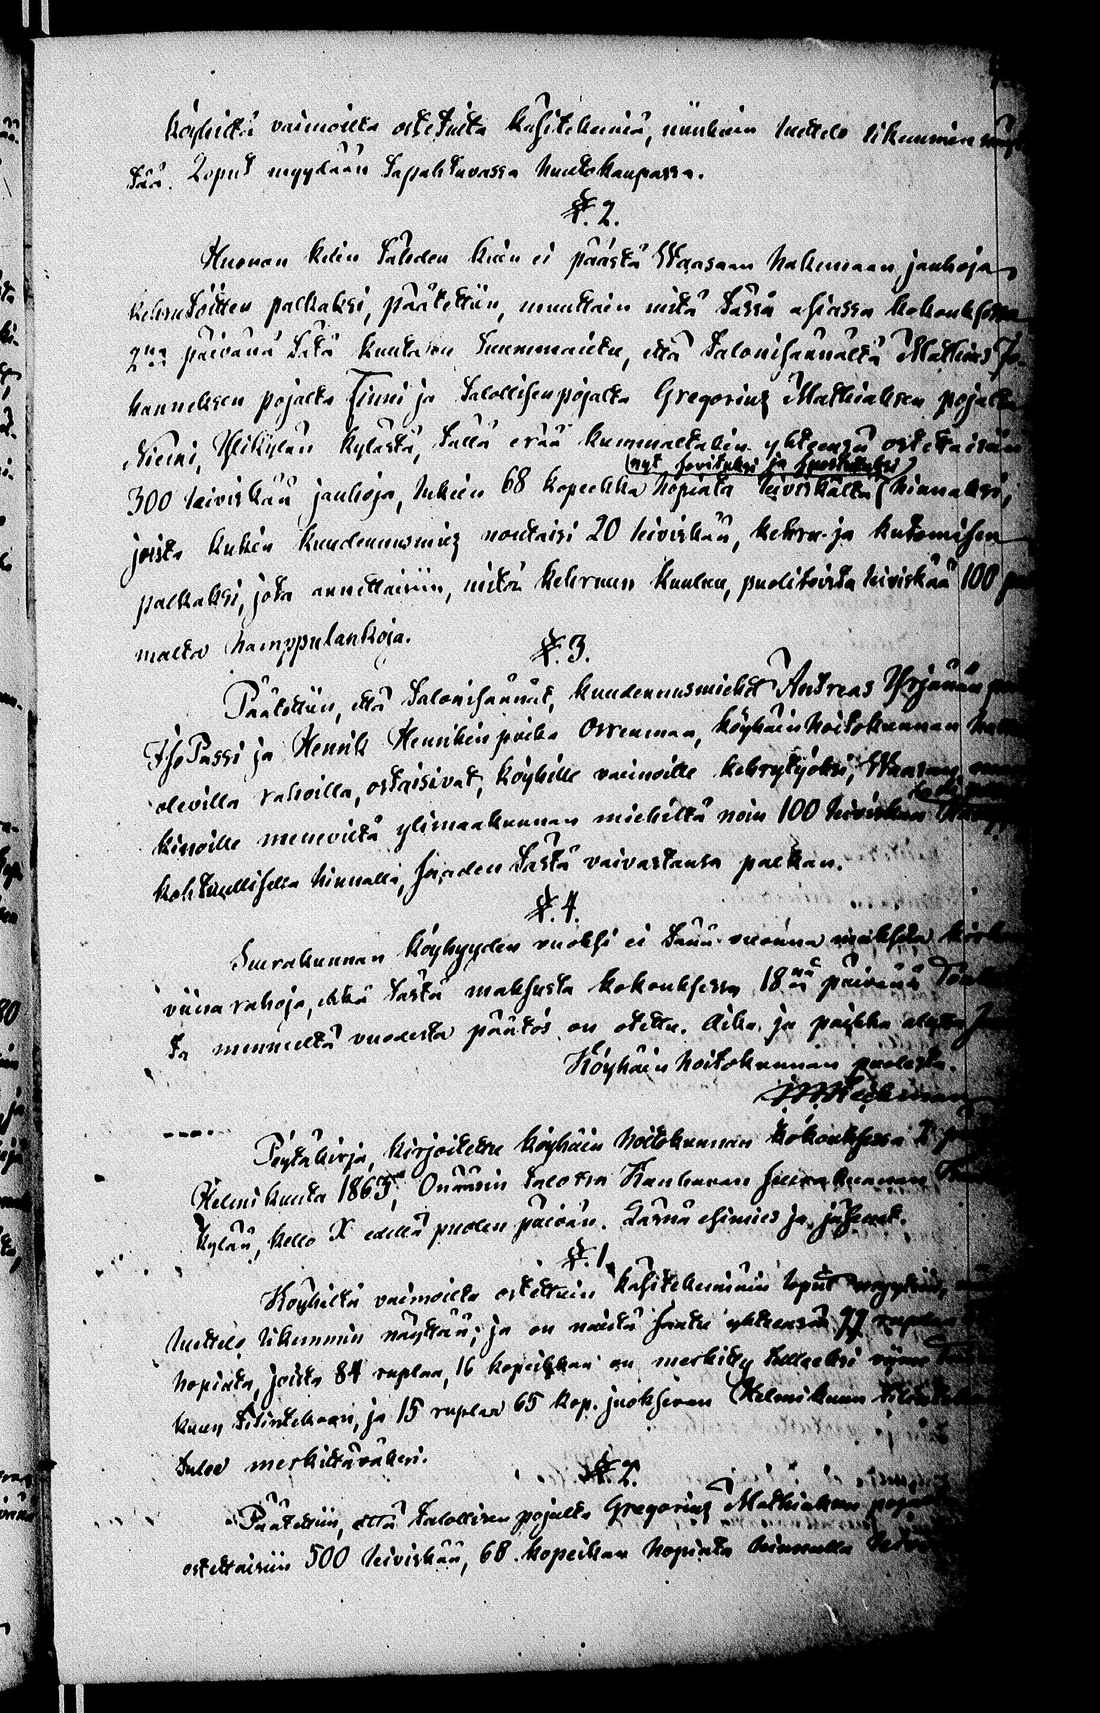 köyhiltä vaimoilta ostetuita käsitekemiä, niinkuin luettelo likemmin
tää. Loput myydään tapahtuvassa huutokaupassa.
§. 2.
Huonon kelin tähden kuin ei päästä Waasaan hakemaan jauhoja
kehruutöitten palkaksi, päätettiin, muuttain mitä tässä asiassa kokouksessa
2na päivänä tätä kuuta on suummattu, että talonisännältä Mathias Jo-
hanneksen pojalta Finni ja talollisenpojalta Gregorius Mathiaksen pojalta
Niemi, Ylikylän kylästä, tällä erää kummaltakin yhteensä ostettaisiin
(nyt sovituksi ja suostutuksi)
300 leiviskää jauhoja, lukien 68 kopeekka hopiata leiviskältä hinnaksi,
joista kukin kuudennusmies noutaisi 20 leiviskää, kehru- ja kutomisen
palkaksi, jota annettaisiin, mitä kehruun kuuluu, puolitoista leiviskää 100
malta hamppulankoja.
§. 3.
Päätettiin, että talonisännät, kuudennusmiehet Andreas Yrjänän
Iso Passi ja Henrik Henrikin poika Orrenmaa, köyhäinhoitokunnan
olevilla rahoilla, ostaisivat, köyhille vaimoille kehrytyöksi, Waasan
kinoille meneviltä ylimaakunnan miehiltä noin 100 leiviskää
kohtuullisella hinnalla, saaden tästä vaivastansa palkan.
§. 4.
Seurakunnan köyhyyden vuoksi ei tänä vuonna makseta
viina rahoja, ehkä tästä maksusta kokouksessa 18na päivänä
ta mennellä vuodesta päätös on otettu. Aika ja paikka
Köyhäin hoitokunnan puolesta.
Pöytäkirja, kirjoitettu köyhäin hoitokunnan kokouksessa 2
Helmikuuta 1863, Onnisin talossa Kauhavan seurakunnan
kylän, kello X edellä puolen päivän. Läsnä esimies ja jäsenet.
§. 1.
Köyhiltä vaimoilta ostettuin käsitekemiäin loput myytiin,
luettelo likemmin näyttää; ja on näistä saatu yhteensä 99 ruplaa
hopiata, joista 84 ruplaa, 16 kopeikkaa on merkitty tulleeksi viime
kuun tilintekoon, ja 15 ruplaa 65 kop. juoksevan Helmikuun
tulee merkittäväksi.
§. 2.
Päätettiin, että talollisen pojalta Gregorius Mathiaksen
ostettaisiin 500 leiviskää, 68 kopeikan hopiata hinnalla